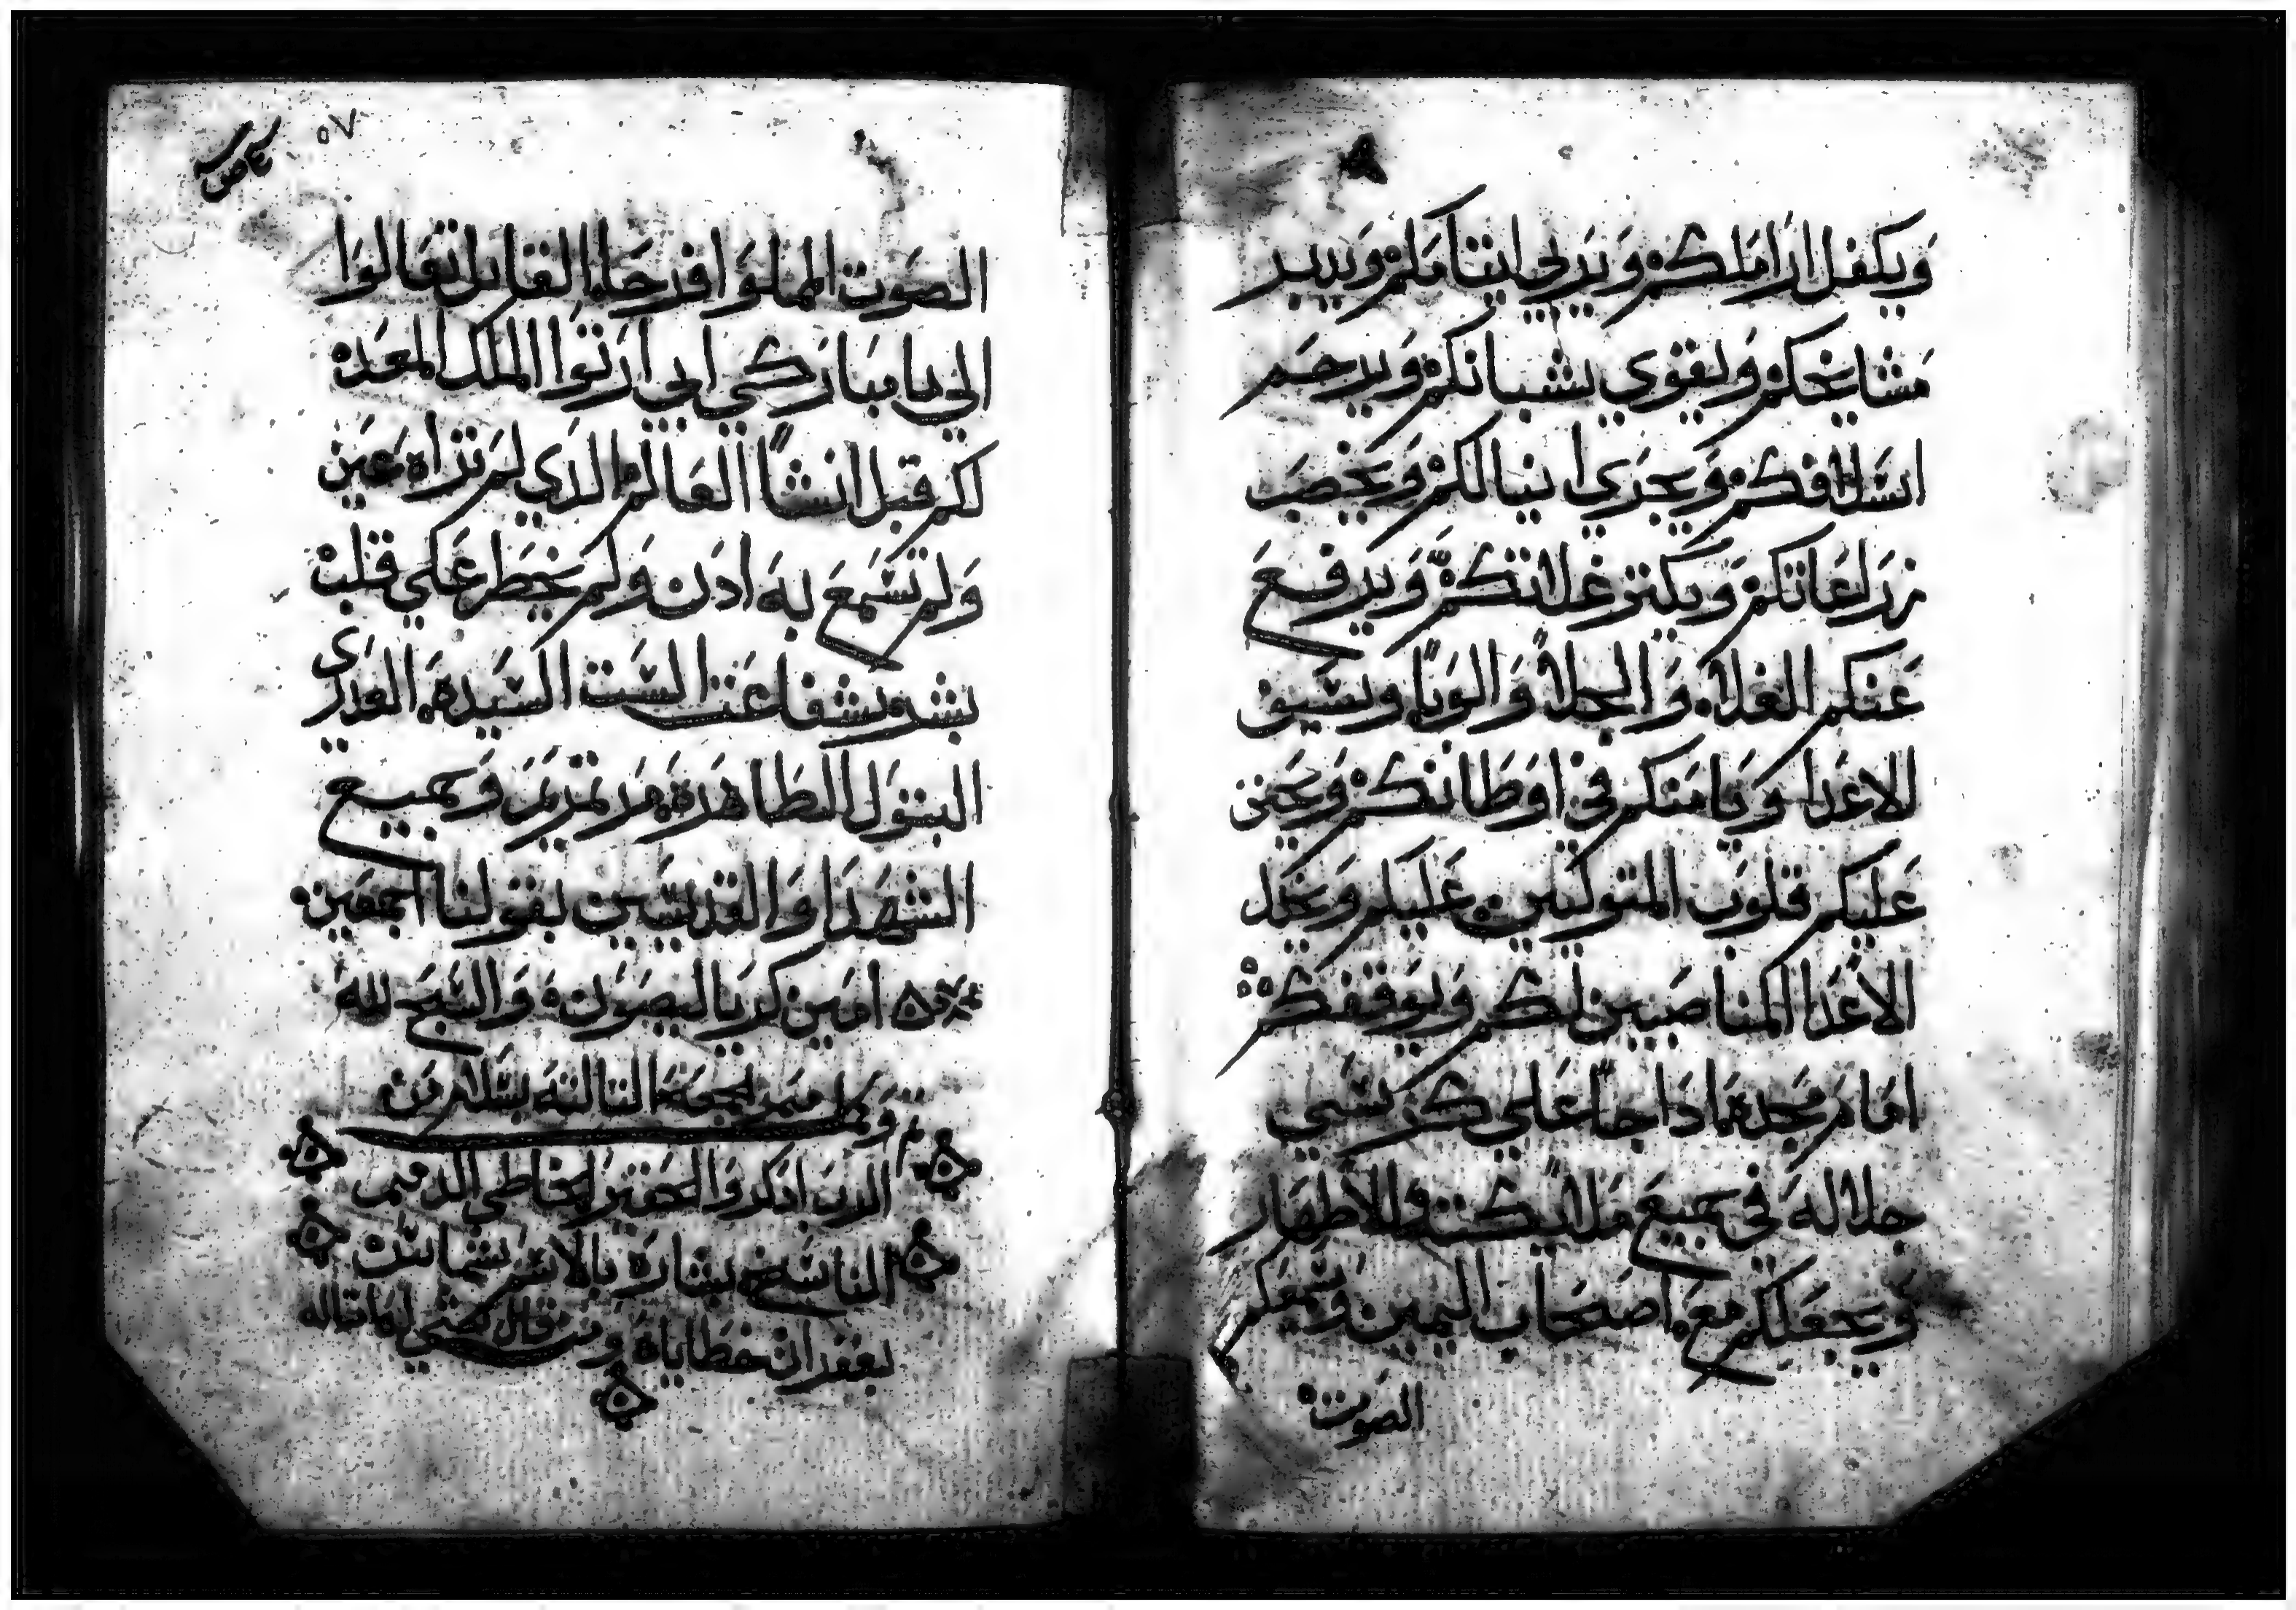 ويكفل اراملكم ويربي ايتامكم ويدبر
مشايخكم ويقوي شبانكم ويرحم
اسلافكم ويجري انيالكم ويخصب
زراعاتكم ويكتر غلاتكم ويرفع
عنكم الغلا والجلا والوبا وسيف
الاعدا ويامنكم في اوطانكم ويحنن
عليكم قلوب المتوليين عليكم ويخمد
الاعدا المناصبين لكم ويوقفكم
امام مجده اذا جا علي كرسي
جلاله في جميع ملايكته الاطهار
ويجعلكم مع اصحاب اليمين ويسمعكم
الصوت
٥٧
الصوت المملوا فرحا القايل تعالوا
الي يا مباركي ابي ارتوا الملك المعده
لكم قبل انشا العالم الدي لم تراه عين
ولم تسمع به ادن ولم يخطر علي قلب
بشر بشفاعت الست السيده العدري
البتول الطاهره مرتمريم وجميع
الشهدا والقديسين بقولنا اجمعين
امين كرياليصون والسبح لله
وكمل ميمر الجمعه التالته بسلام من
الرب ادكروا الحقير الخاطي الدميم
الناسخ بشاره بالاسم شماس
بغفران خطاياه ومن قال شي له ما قاله